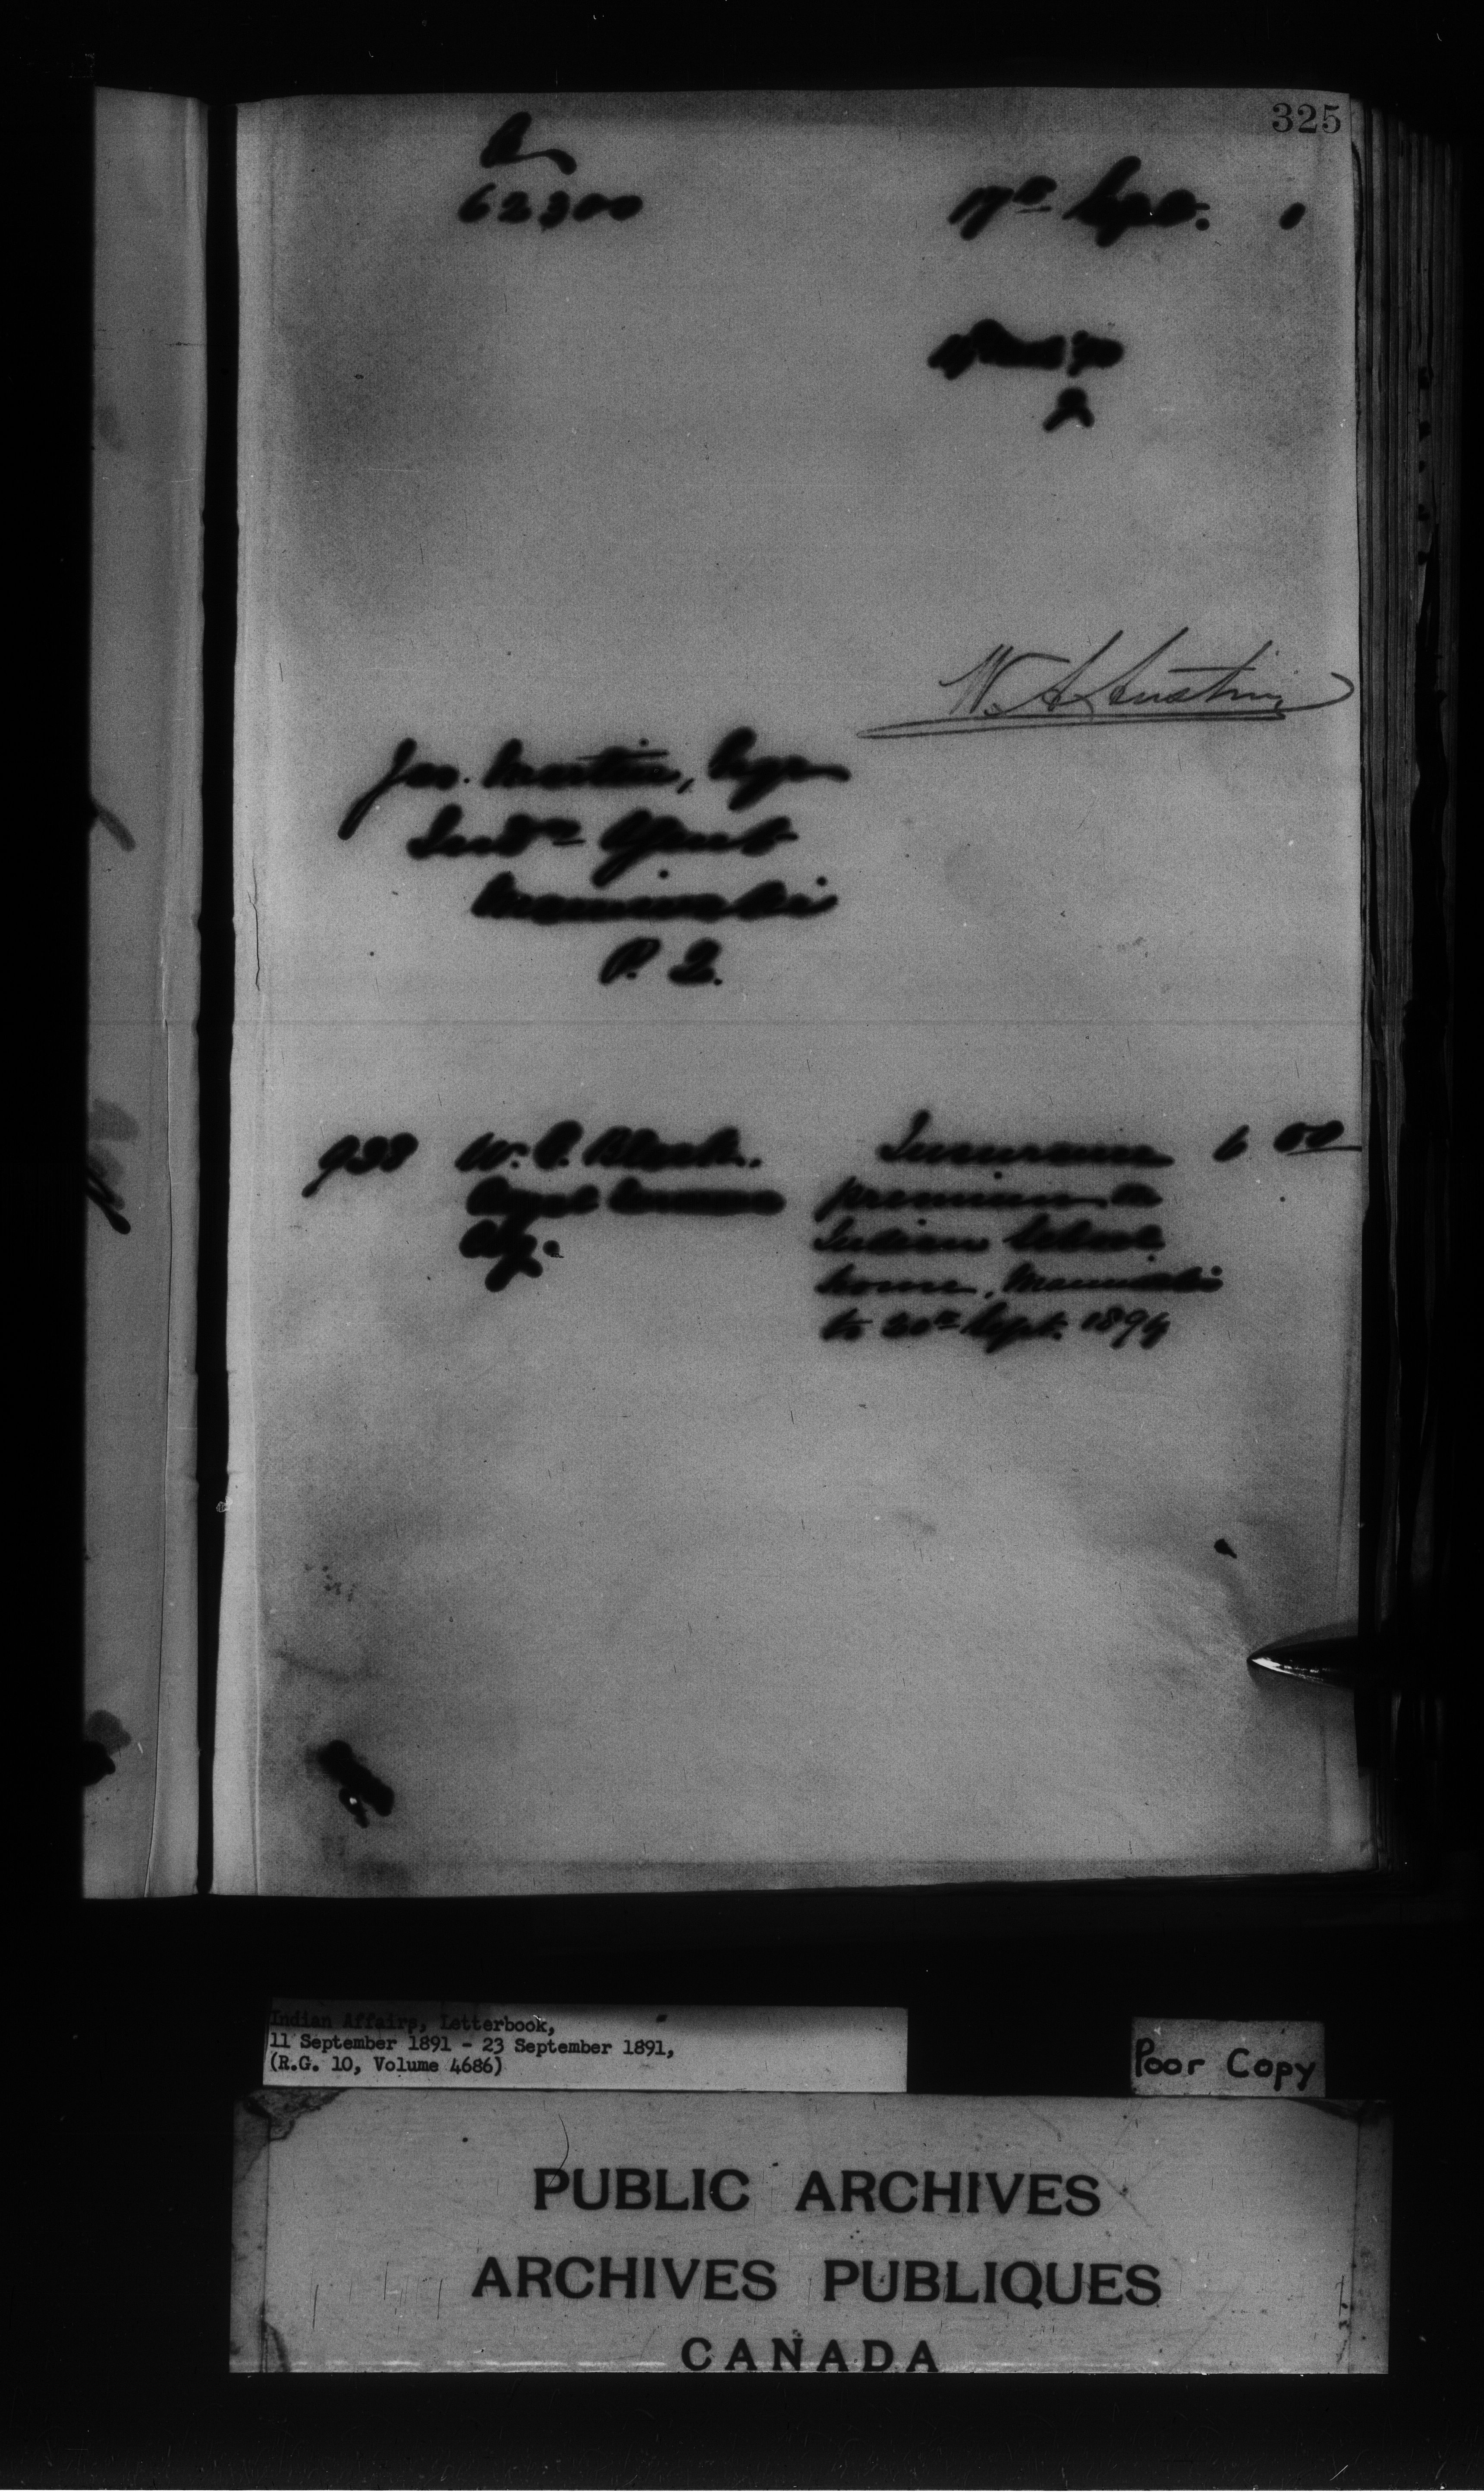 325
62300
17th Sept. 1
W. A. Austin
Jas. Martin, Esqre
Indn Agent
Maniwaki
P. Q.
938 W. C. Black. Insurance 6 00
Agent premium on
Indian School
house, Maniwaki
to 20th Sept. 1894
Indian Affairs, Letterbook,
11 September 1891 - 23 September 1891,
(R.G. 10, Volume 4686)
Poor Copy
PUBLIC ARCHIVES
ARCHIVES PUBLIQUES
CANADA